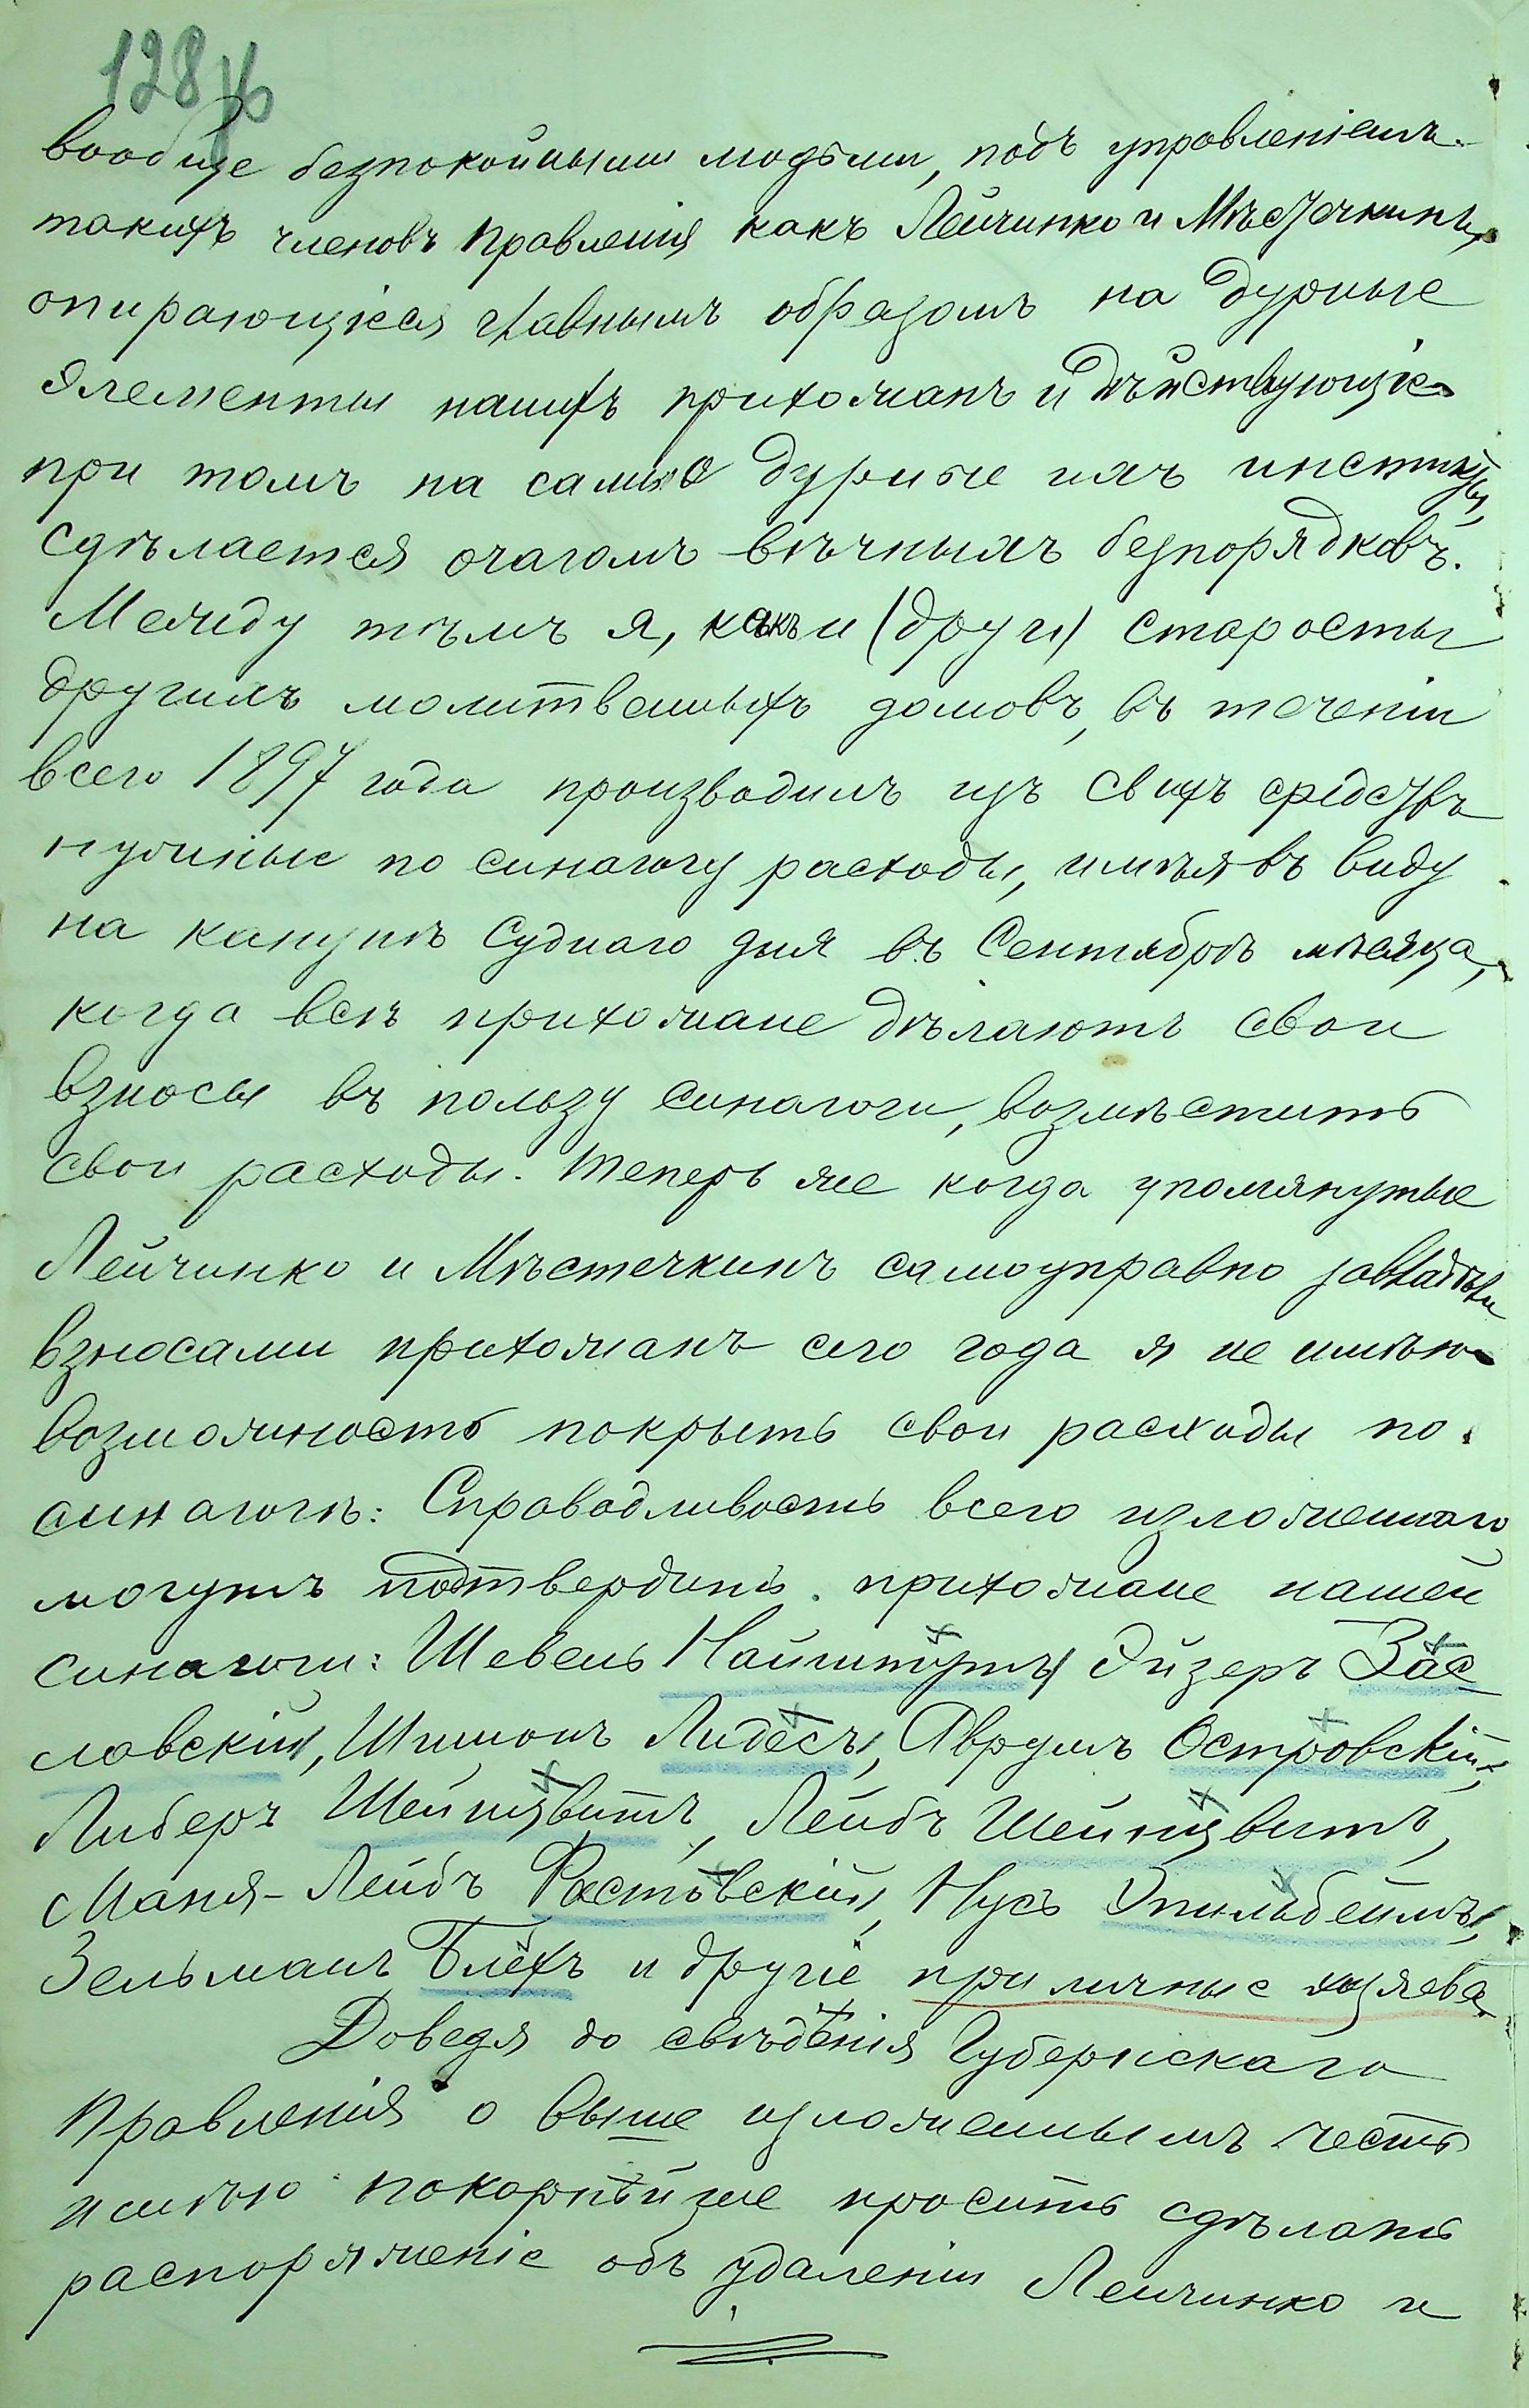 128 об
вообще безпокойными людьми, подъ управленіемъ
такихъ членовъ правленія какъ Лейчинко и Мѣстечкинъ,
опирающіеся главнымъ образомъ на дурные
элементы нашихъ прихожанъ и дѣйствующіе
при томъ на самые дурные ихъ инстинкты,
сдѣлается очагомъ вѣчныхъ безпорядковъ.
Между тѣмъ я, какъ и (други) старосты
другихъ молитвенныхъ домовъ, въ теченіи
всего 1897 года производилъ изъ свихъ средствъ
нужные по синагогу расходы, имѣя въ виду
на канунѣ Суднаго дня въ Сентябрѣ мѣсяца,
когда всѣ прихожане дѣлаютъ свои
взносы въ пользу синагоги, возмѣстить
свои расходы. Теперь же когда упомянутые
Лейчинко и Мѣстечкинъ самоуправно завладѣли
взносами прихожанъ сего года я не имѣю
возможность покрыть свои расходы по
синагогѣ: Справодливость всего изложеннаго
могутъ подтвердить прихожане нашей
синагоги: Шевель Наймитумъ, Эйзеръ Зас
лавскій, Шимонъ Лидесъ, Аврумъ Островскій,
Либеръ Шейнцвитъ, Лейбъ Шейнцвитъ,
Маня-Лейбъ Растовскій, Нусъ Эпильбеймъ,
Зельманъ Блехъ и другіе приличные хозяева.
Доведя до свѣдѣнія Губернскаго
Правленія о выше изложенныимъ честь
имѣю покорнѣйше просить сдѣлать
распоряженіе объ удаленіи Лейчинко и